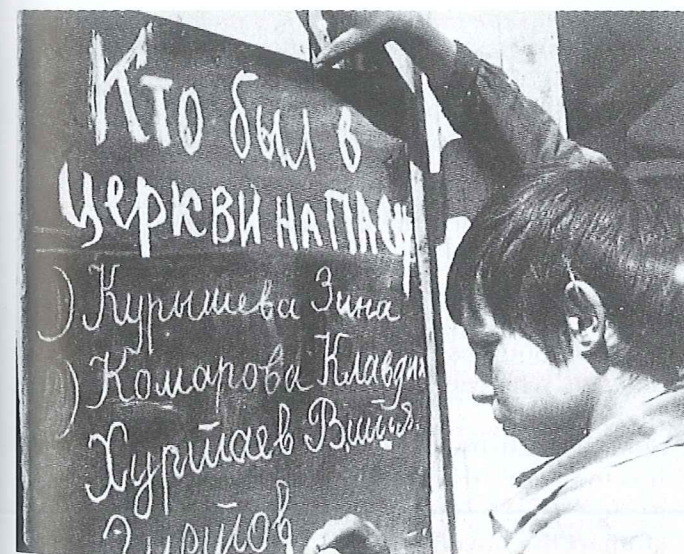 Кто был в
церкви на пасху
) Курышева Зина
) Комарова Клавдия
Хуртаев Витя.